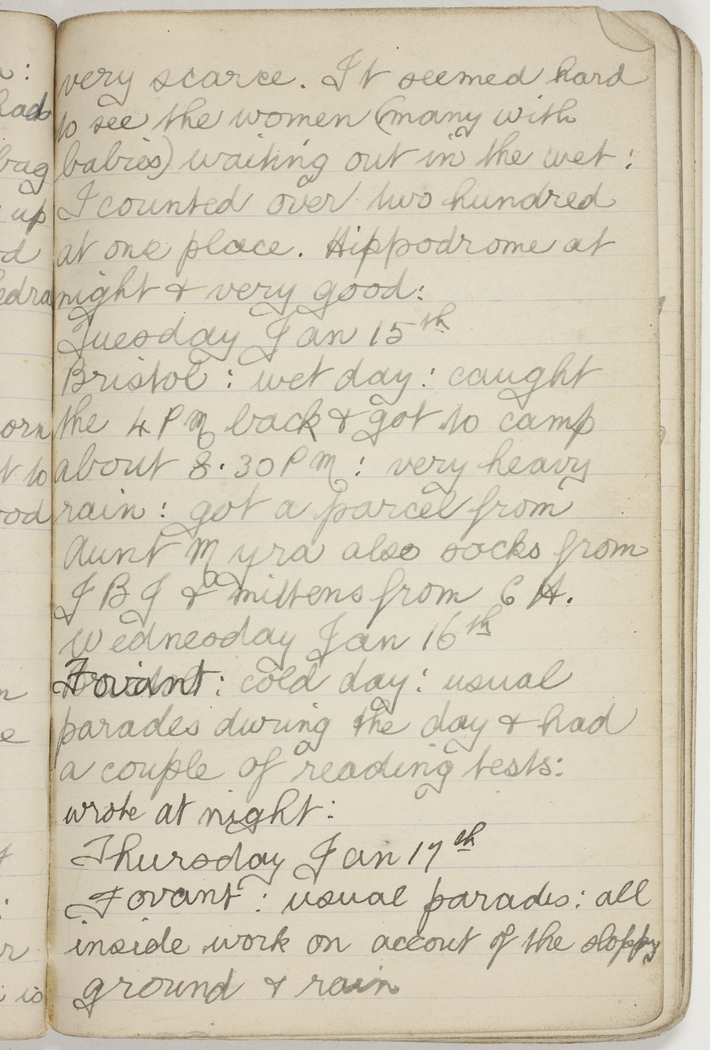 very scarce. It seemed hard
to see the women (many with
babies) waiting out in the wet:
I counted over two hundred
at one place. Hippodrome at
night & very good:
Tuesday Jan 15th
Bristol: wet day: caught
the 4 PM back & got to camp
about 8.30 PM: very heavy
rain: got a parcel from
Aunt Myra also socks from
J B J & mittens from C A.
Wednesday Jan 16th
Fovant: cold day: usual
parades during the day & had
a couple of reading tests:
wrote at night:
Thursday Jan 17th
Fovant: usual parades: all
inside work on accout of the sloppy
ground & rain